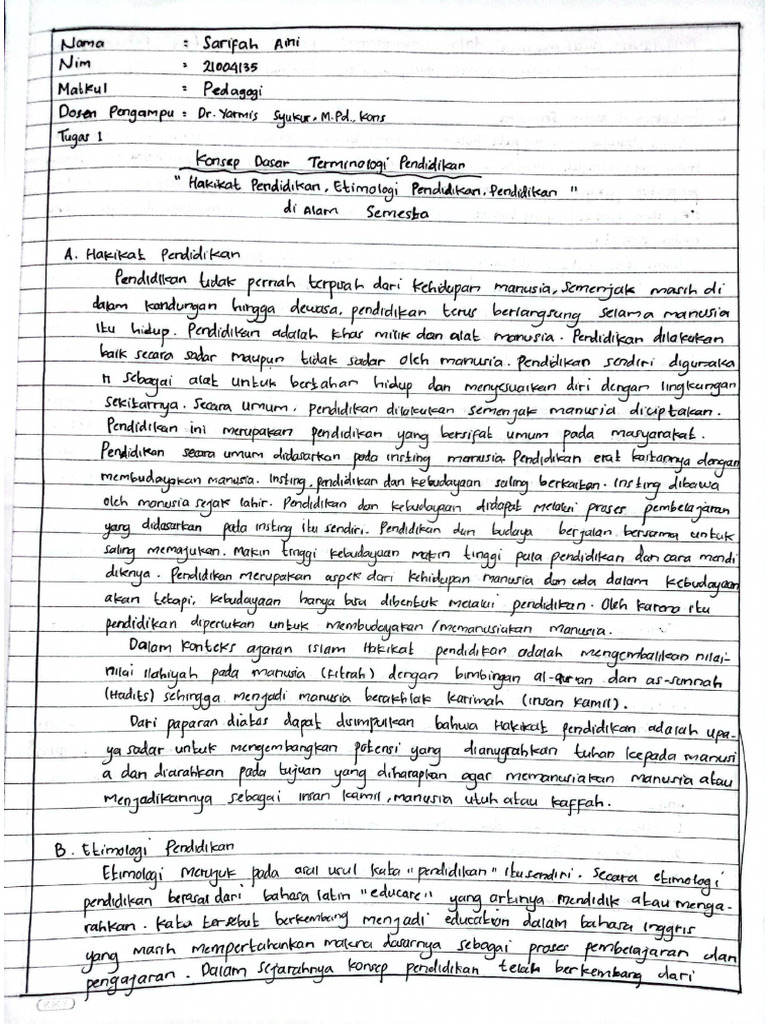 Nama : Sarifah Aini
Nim : 21004135
Matkul : Pedagogi
Dosen Pengampu : Dr. Yarmis Syukur, M.Pd., Kons
Tugas 1
Konsep Dasar Terminologi Pendidikan
" Hakikat Pendidikan, Etimologi Pendidikan, Pendidikan "
di Alam Semesta
A. Hakikat Pendidikan
Pendidikan tidak pernah terpisah dari kehidupan manusia, semenjak masih di
dalam kandungan hingga dewasa, pendidikan terus berlangsung selama manusia
itu hidup. Pendidikan adalah khas milik dan alat manusia. Pendidikan dilakukan
baik secara sadar maupun tidak sadar oleh manusia. Pendidikan sendiri digunaka
n sebagai alat untuk bertahan hidup dan menyesuaikan diri dengan lingkungan
sekitarnya. Secara umum, pendidikan dilakukan semenjak manusia diciptakan.
Pendidikan ini merupakan pendidikan yang bersifat umum pada masyarakat.
Pendidikan secara umum didasarkan pada insting manusia. Pendidikan erat kaitannya dengan
membudayakan manusia. Insting, pendidikan dan kebudayaan saling berkaitan. Insting dibawa
oleh manusia sejak lahir. Pendidikan dan kebudayaan didapat melalui proses pembelajaran
yang didasarkan pada insting itu sendiri. Pendidikan dan budaya berjalan bersama untuk
saling memajukan. Makin tinggi kebudayaan makin tinggi pula pendidikan dan cara mendi
diknya. Pendidikan merupakan aspek dari kehidupan manusia dan ada dalam kebudayaan
akan tetapi, kebudayaan hanya bisa dibentuk melalui pendidikan. Oleh karena itu
pendidikan diperlukan untuk membudayakan /memanusiakan manusia.
Dalam konteks ajaran Islam Hakikat pendidikan adalah mengembalikan nilai-
nilai ilahiyah pada manusia (Fitrah) dengan bimbingan al-qur'an dan as-sunnah
(Hadits) sehingga menjadi manusia berakhlak karimah (insan kamil).
Dari paparan diatas dapat disimpulkan bahwa Hakikat pendidikan adalah upa-
ya sadar untuk mengembangkan potensi yang dianugrahkan tuhan kepada manusi
a dan diarahkan pada tujuan yang diharapkan agar memanusiakan manusia atau
menjadikannya sebagai insan kamil, manusia utuh atau kaffah.
B. Etimologi Pendidikan
Etimologi merujuk pada asal usul kata "pendidikan" itu sendiri. Secara etimologi
pendidikan berasal dari bahasa latin "educare" yang artinya mendidik atau menga-
rahkan. Kata tersebut berkembang menjadi education dalam bahasa inggris
yang masih mempertahankan makna dasarnya sebagai proses pembelajaran dan
pengajaran. Dalam sejarahnya konsep pendidikan telah berkembang dari